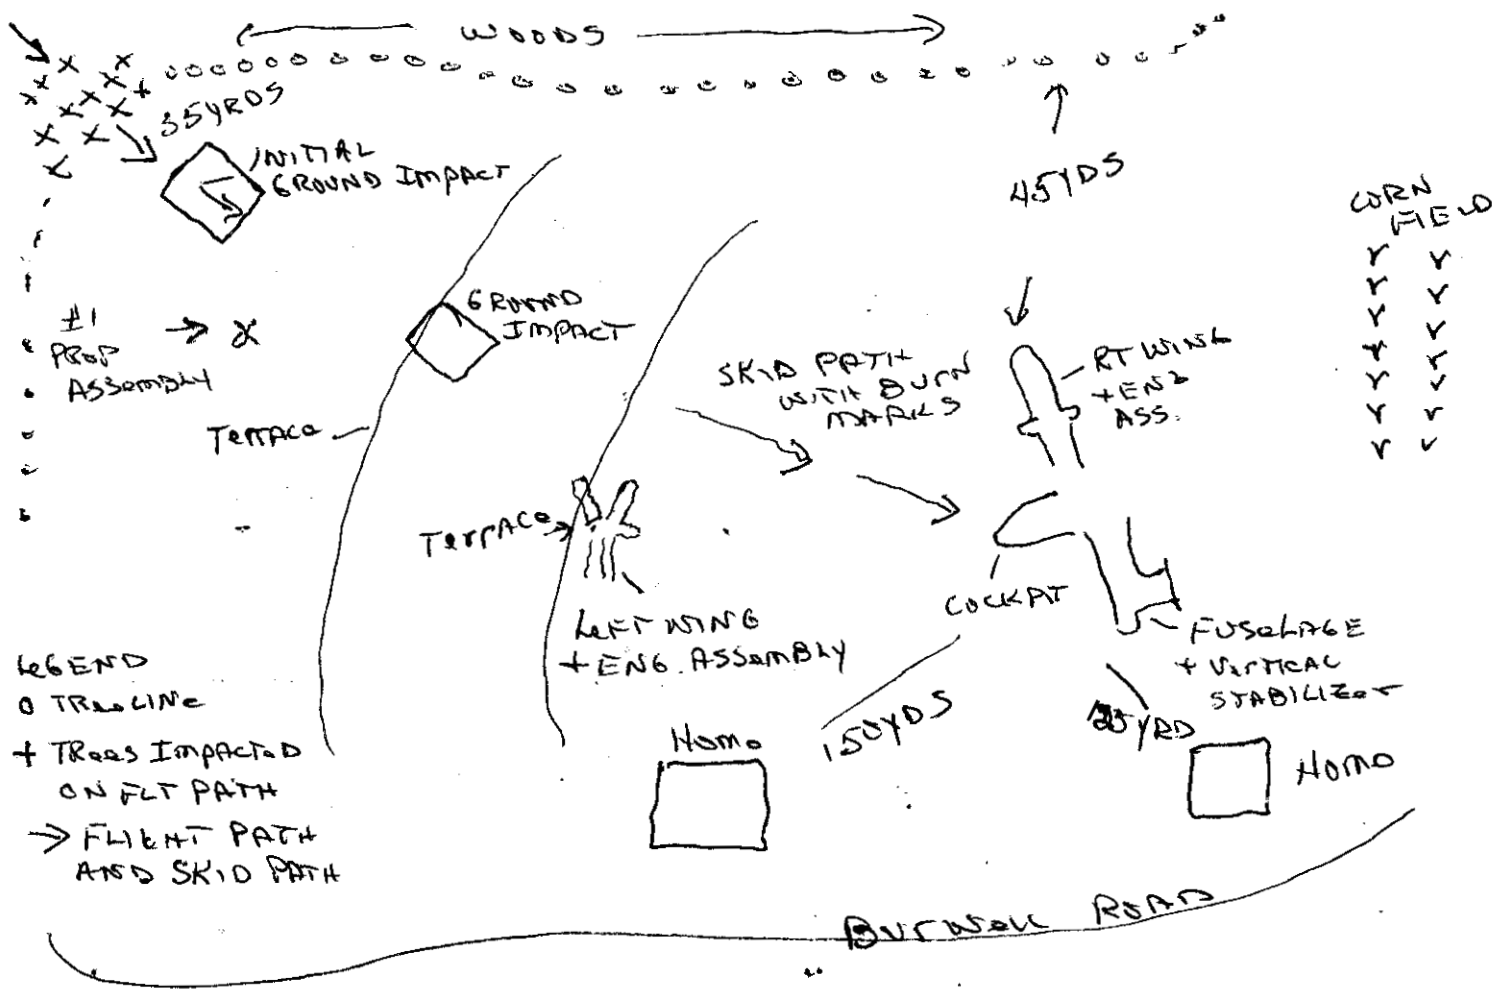 WOODS
35YRDS
INITIAL
GROUND IMPACT
45YDS
CORN
FIELD
#1
PROP
ASSEMBLY
GROUND
IMPACT
SKID PATH
WITH BURN
MARKS
RT WING
+ ENG
ASS.
TerrAce
TerrAce
COCKPIT
LeFT WING
+ ENG. ASSEMBLY
FUSeLAGE
+ VerTICAL
STABILIZer
LeGEND
O TReeLINe
+ TRees IMPACTeD
ON FLT PATH
→ FLIGHT PATH
AND SKID PATH
150YDS
YRD
Home
Home
BUrWell ROAD